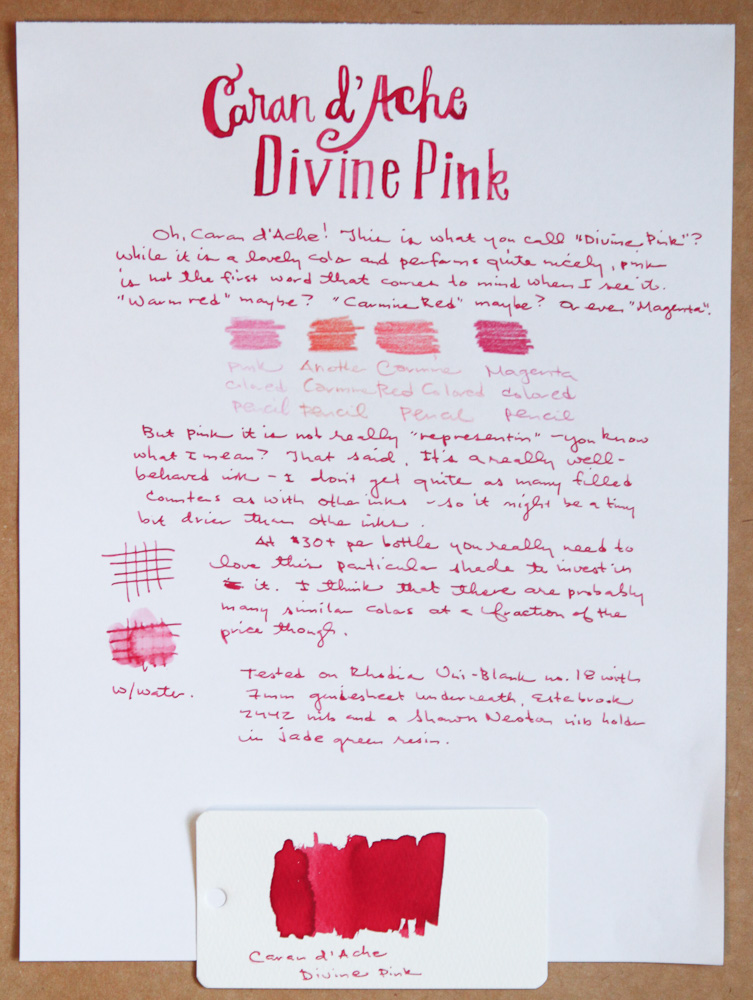 Caran d'Ache
Divine Pink
Oh, Caran d'Ache! This is what you call "Divine Pink"?
While it is a lovely color and performs quite nicely, pink
is not the first word that comes to mind when I see it.
"Warm red" maybe? "Carmine Red" maybe? Or even "Magenta".
pink Another Carmine Magenta
colored Carmine Red Colored colored
pencil pencil pencil pencil
But pink it is not really "representin" - you know
what I mean? That said, It's a really well-
behaved ink - I don't get quite as many filled
counters as with other inks - so it might be a tiny
bit drier than other inks.
At $30+ per bottle you really need to
love this particular shade to invest in
it. I think that there are probably
many similar colors at a fraction of the
price though.
w/water.
Tested on Rhodia Uni-Blank no. 18 with
7mm guidesheet underneath, Esterbrook
2442 nib and a Shawn Newton nib holder
in jade green resin.
Caran d'Ache
Divine Pink